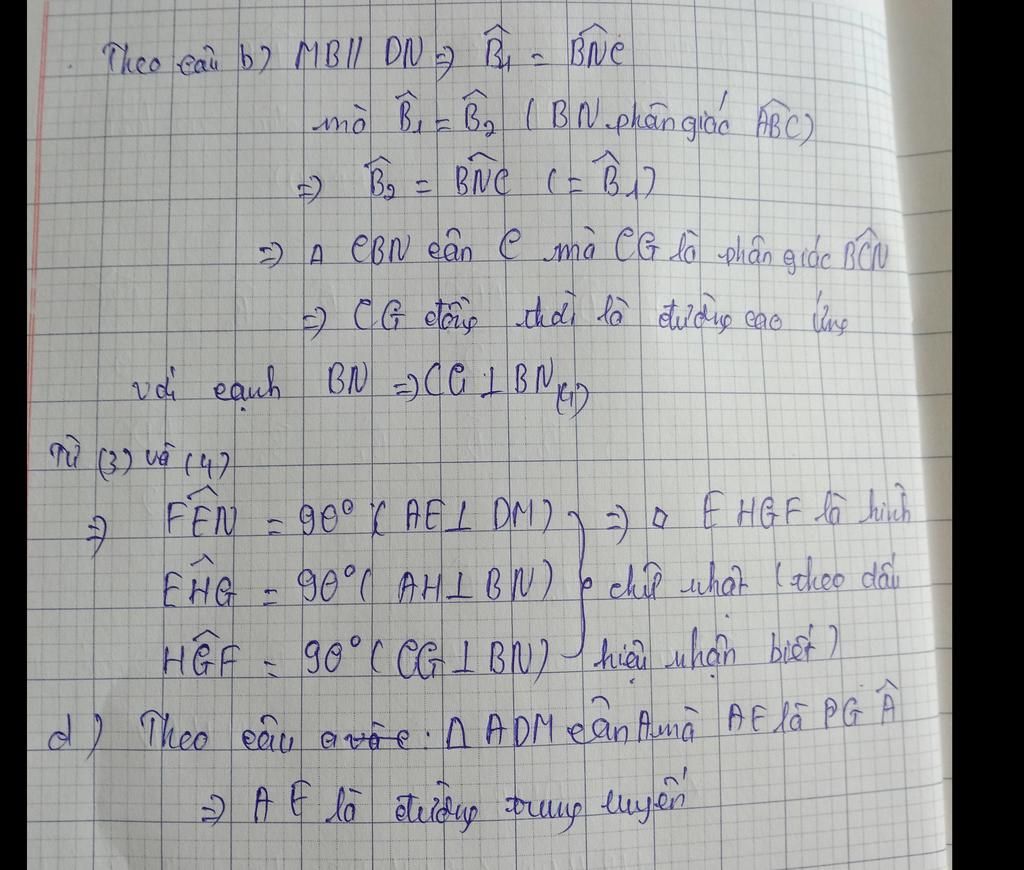 Theo câu b) MB // DN => B̂₁ = BN̂C
mà B̂₁ = B̂₂ (BN phân giác AB̂C)
=> B̂₂ = BN̂C (= B̂₁)
=> Δ CBN cân C mà CG là phân giác BĈN
=> CG đồng thời là đường cao ứng
với cạnh BN => CG ⊥ BN (4)
Từ (3) và (4)
=> FÊN = 90° (AE ⊥ DM) } => □ EHGF là hình
EĤG = 90° (AH ⊥ BN) } chữ nhật (theo dấu
HĜF = 90° (CG ⊥ BN) } hiệu nhận biết)
d) Theo câu a và c : Δ ADM cân A mà AE là PG Â
=> AE là đường trung tuyến